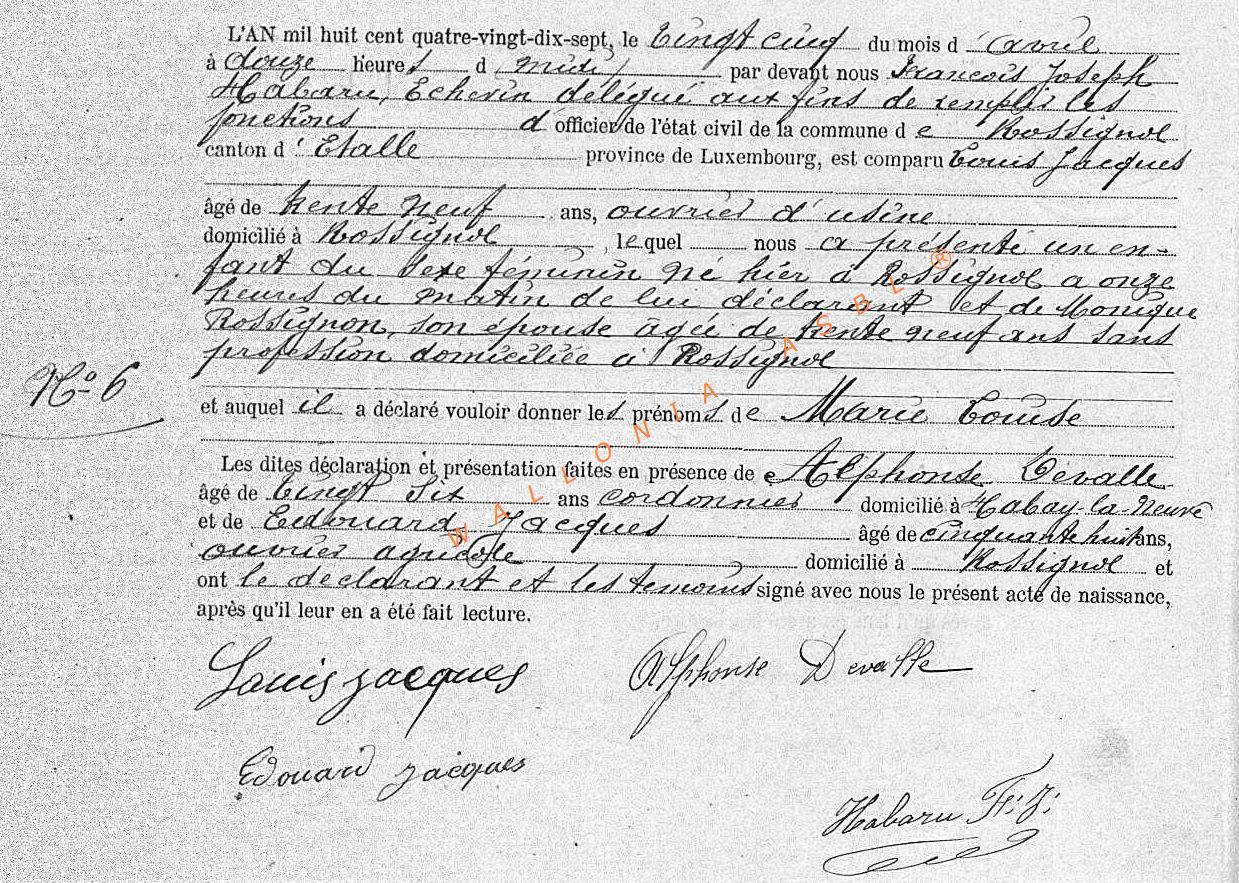 L'AN mil huit cent quatre-vingt-dix-sept, le vingt cinq du mois d'avril
à douze heures d (midi) par devant nous François Joseph
Habaru, Echevin délégué aux fins de remplir les
fonctions d'officier de l'état civil de la commune de Rossignol
canton d'Etalle province de Luxembourg, est comparu Louis Jacques
âgé de trente neuf ans, ouvrier d'usine
domicilié à Rossignol, lequel nous a présenté un en-
fant du sexe féminin né hier à Rossignol a onze
heures du matin de lui déclarant et de Monique
Rossignon, son épouse âgée de trente neuf ans sans
profession domiciliée à Rossignol
No 6
et auquel il a déclaré vouloir donner les prénoms de Marie Louise
Les dites déclaration et présentation faites en présence de Alphonse Devalle
âgé de vingt six ans cordonnier domicilié à Habay-la-Neuve
et de Edouard Jacques âgé de cinquante huit ans,
ouvrier agricole domicilié à Rossignol et
ont le déclarant et les témoins signé avec nous le présent acte de naissance,
après qu'il leur en a été fait lecture.
Louis jacques Alphonse Devalle
Edouard jacques
Habaru F. J.
WALLONIA ASBL ®